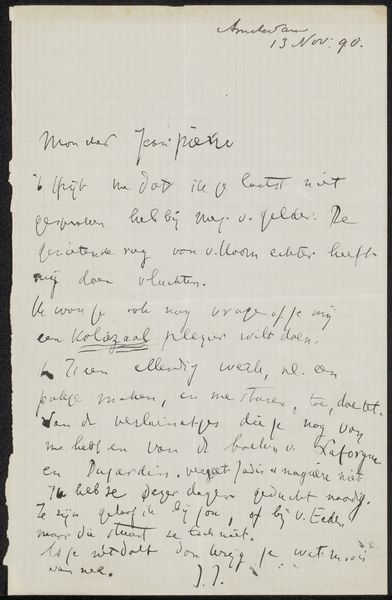 Amsterdam
13 Nov: 90.
Mon cher Jean pierre
't spijt me dat ik je laatst niet
gesproken heb bij mej. v. Gelder. De
rag von v. Hoorn echter heeft
mij doen vluchten.
Ik wou je ook nog vrage of je mij
een kolozaal plezier wilt doen.
't Is een ellendig werk, nl. een
pakje maken, en me sturen, toe, doe 't et.
van de die je nog van
me hebt en van de boeken v. Laforgue
en Dujardin. vergeet Jadis et naguère niet.
Ik heb ze dezer dagen geducht noodig.
Ze zijn geloof ik bij jou, of bij v. Eeden
maar die stuurt ze toch niet.
Als je 't dan krijg je wat moois
van me. J. J.